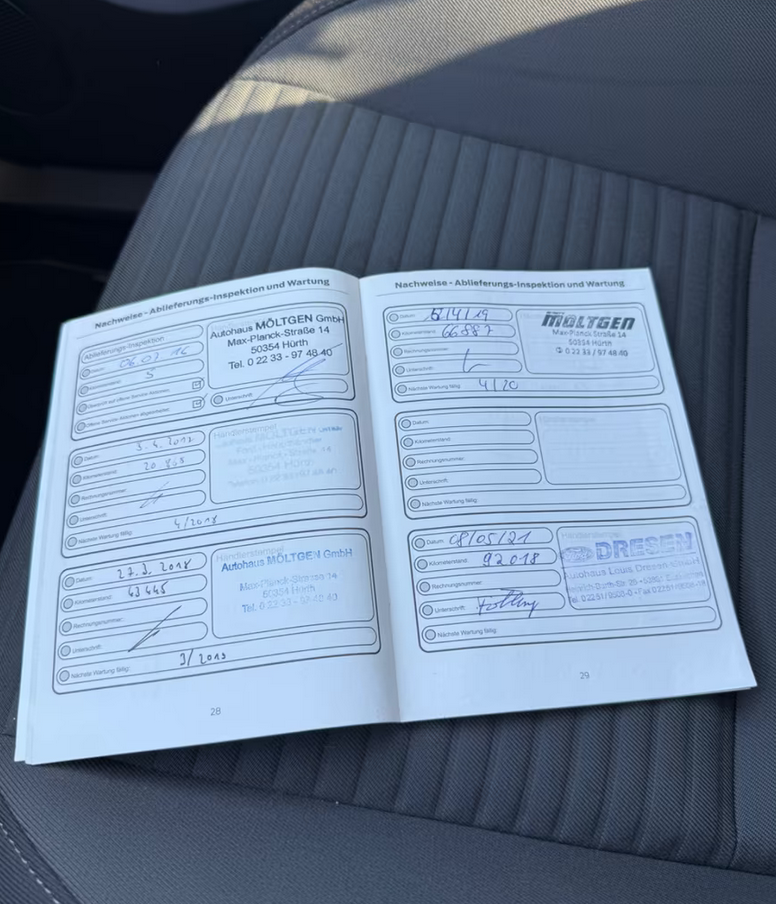 Nachweise - Ablieferungs-Inspektion und Wartung
Ablieferungs-Inspektion
Datum:
Kilometerstand: 5
Unterschrift:
Autohaus MÖLTGEN GmbH
Max-Planck-Straße 14
50354 Hürth
Tel. 0 22 33 - 97 48 40
Datum: 3.4.2017
Kilometerstand: 20 865
Rechnungsnummer:
Unterschrift:
Nächste Wartung fällig: 4/2018
Händlerstempel
Max-Planck-Straße 14
50354 Hürth
Datum: 27.3.2018
Kilometerstand: 43 445
Rechnungsnummer:
Unterschrift:
Nächste Wartung fällig: 3/2019
Händlerstempel
Autohaus MÖLTGEN GmbH
Max-Planck-Strasse 14
50354 Hürth
Tel. 0 22 33 - 97 48 40
28
Nachweise - Ablieferungs-Inspektion und Wartung
Datum: /4/19
Kilometerstand: 66887
Rechnungsnummer:
Unterschrift:
Nächste Wartung fällig: 4/20
MÖLTGEN
Max-Planck-Straße 14
50354 Hürth
0 22 33 / 97 48 40
Datum:
Kilometerstand:
Rechnungsnummer:
Unterschrift:
Nächste Wartung fällig:
Händlerstempel
Datum: 08/05/21
Kilometerstand: 92018
Rechnungsnummer:
Unterschrift:
Nächste Wartung fällig:
DRESEN
Autohaus Louis Dresen GmbH
29